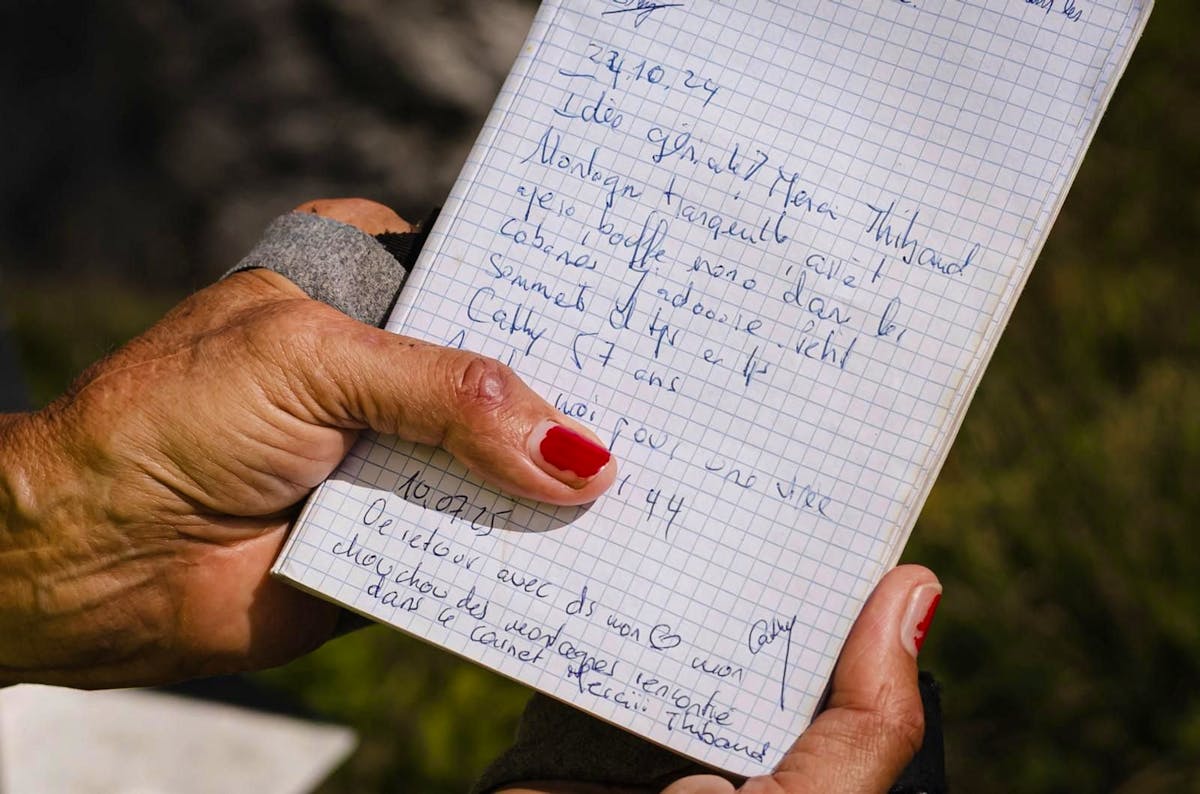 dans les
22.10.24
Idée géniale? Merci Thibaud
Montagn tranquille, arrêt
apéro bouffe mono dan les
cabanes, j'adooore. Petit
sommets d tps en tps
Cathy 57 ans
moi pour une virée
! 44
10.07.25
De retour avec ds mon ♡ mon
chouchou des montagnes rencontré
dans le carnet Merciii Thibaud
Cathy